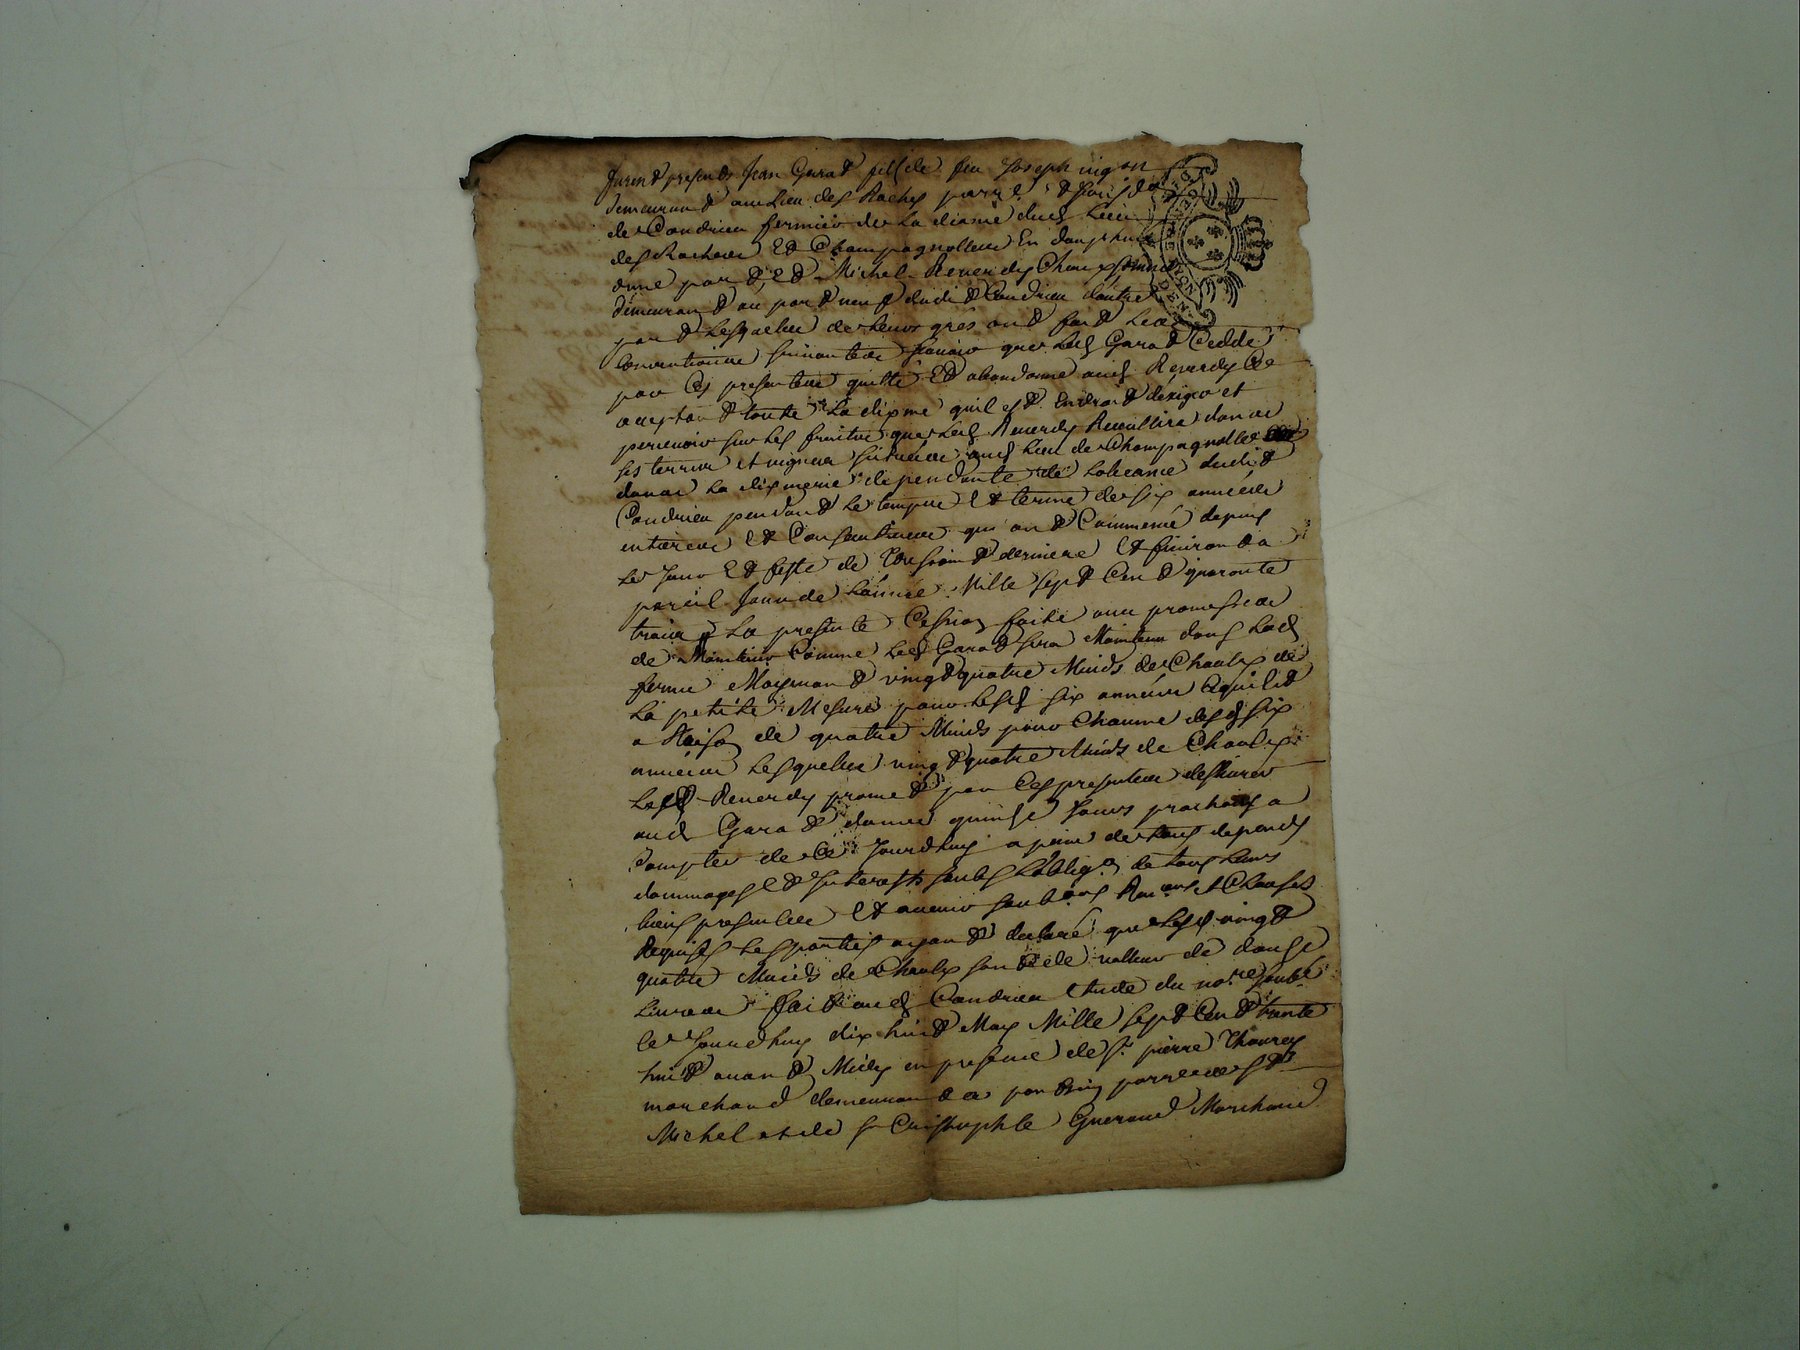 furent presents Jean Garad fils de feu Joseph vigon
demeurant au lieu des Roches
de Condrieu fermier de la disme dud lieu
des Roches Et Champagnollere En dauphiné
dune part, Et Michel Reverdy
demeurant au dudit Condrieu dautre
part Lesquelles de leurs grés ont fait Les
Conventions suivantes scavoir que Led Garad Cedde
par Ces presentes quitte Et abandonne aud Reverdy
acceptant toute la dixme quil est Endroit dexiger et
percevoir sur Les fruits que Led Reverdy Recuillira dans
ses terres et vignes situées aud Lieu de Champagnolle
dans La dixmerie dependante de dudit
Condrieu pendant Le temps Et terme de six années
entieres Et Consecutives qui ont Commencé depuis
Le Jour Et feste de derniere Et finiront a
pareil Jour de Lannée Mille sept Cent quarante
trois La presente Cession faite avec promesse
de Maintenir Comme Led Garad sera Maintenu dans Lad
ferme Moyenant vingt quatre Muids de Chaulx de
La petite Mesure pour Lesd six années
a Raison de quatre Muids pour Chacune desd six
années Lesquelles vingt quatre Muids de Chaulx
Led Reverdy promet par Ces presentes deslivrer
aud Garad dans quinze Jours prochains a
Compter de Ce Jourdhuy a peine de tous depends
dommages Et Interests soubs Loblig.on de tous Leurs
biens presents Et avenir soub.ons Ren.ons et Clauses
Requises Les parties ayant declaré que Lesd vingt
quatre Muids de Chaulx sont de valleur de douze
Livres fait aud Condrieu Etude du no.re soub.né
Ce Jourdhuy dix huit May Mille sept Cent trente
huit avant Midy en presence de S.r pierre Thourey
marchand demeurant a St
Michel et de Sr Christophle Guerand Marchand